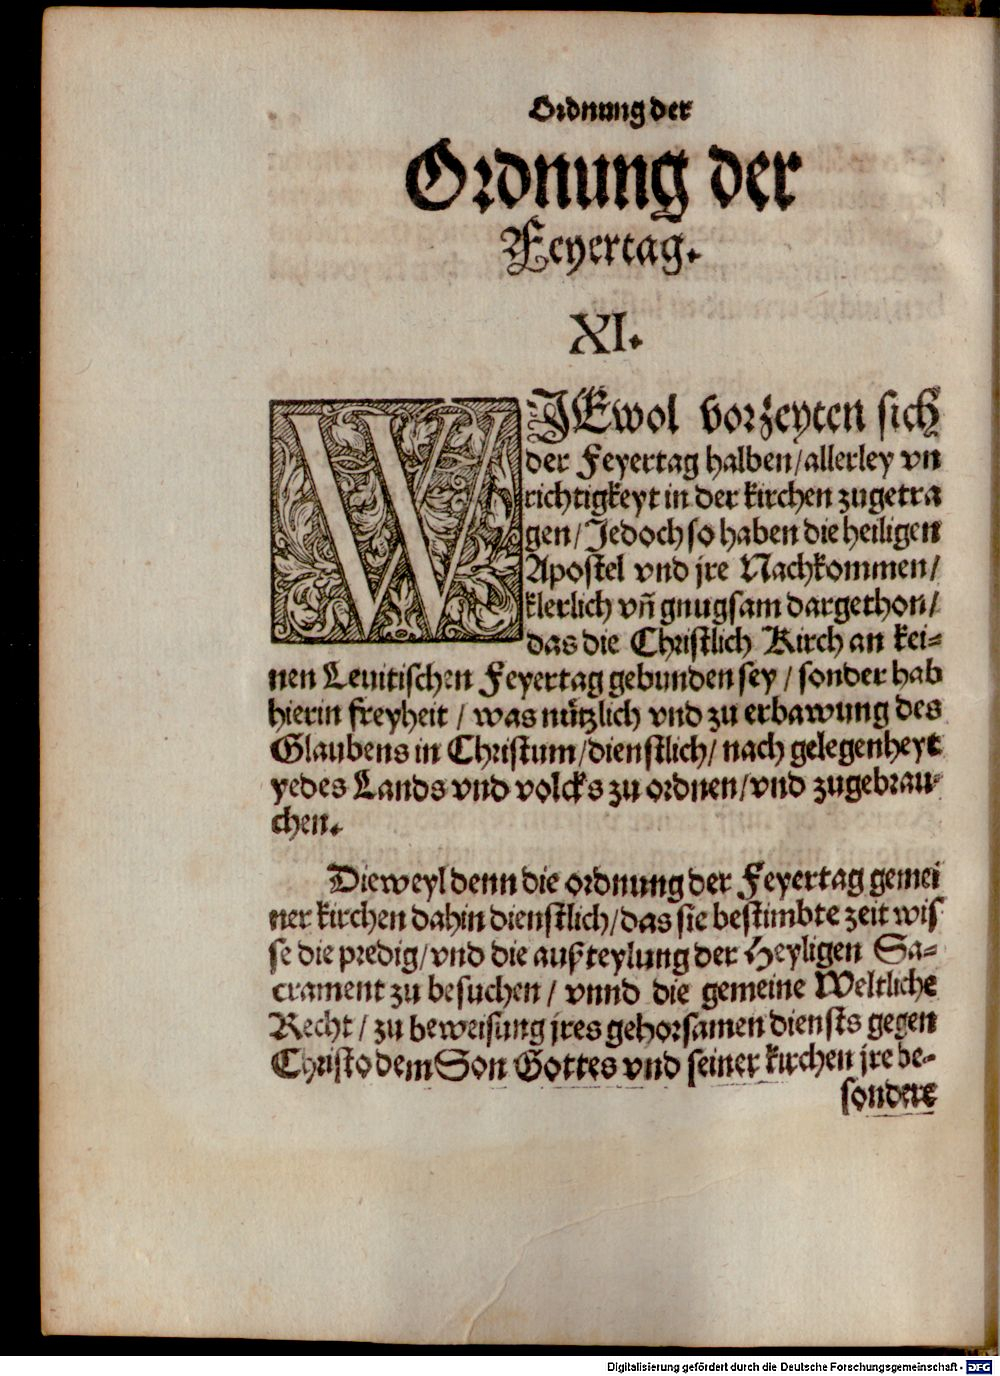 Ordnung der
Ordnung der
Feyertag.
XI.
WJEwol vorzeyten sich
der Feyertag halben/allerley vn
richtigkeyt in der kirchen zugetra
gen/Jedoch so haben die heiligen
Apostel vnd jre Nachkommen/
klerlich vñ gnugsam dargethon/
das die Christlich Kirch an kei-
nen Leuitischen Feyertag gebunden sey/sonder hab
hierin freyheit/was nützlich vnd zu erbawung des
Glaubens in Christum/dienstlich/nach gelegenheyt
yedes Lands vnd volcks zu ordnen/vnd zugebrau-
chen.
Dieweyl denn die ordnung der Feyertag gemei
ner kirchen dahin dienstlich/das sie bestimbte zeit wis
se die predig/vnd die außteylung der Heyligen Sa-
crament zu besuchen/vnnd die gemeine Weltliche
Recht/zu beweisung jres gehorsamen diensts gegen
Christo dem Son Gottes vnd seiner kirchen jre be-
sondere
Digitalisierung gefördert durch die Deutsche Forschungsgemeinschaft - DFG